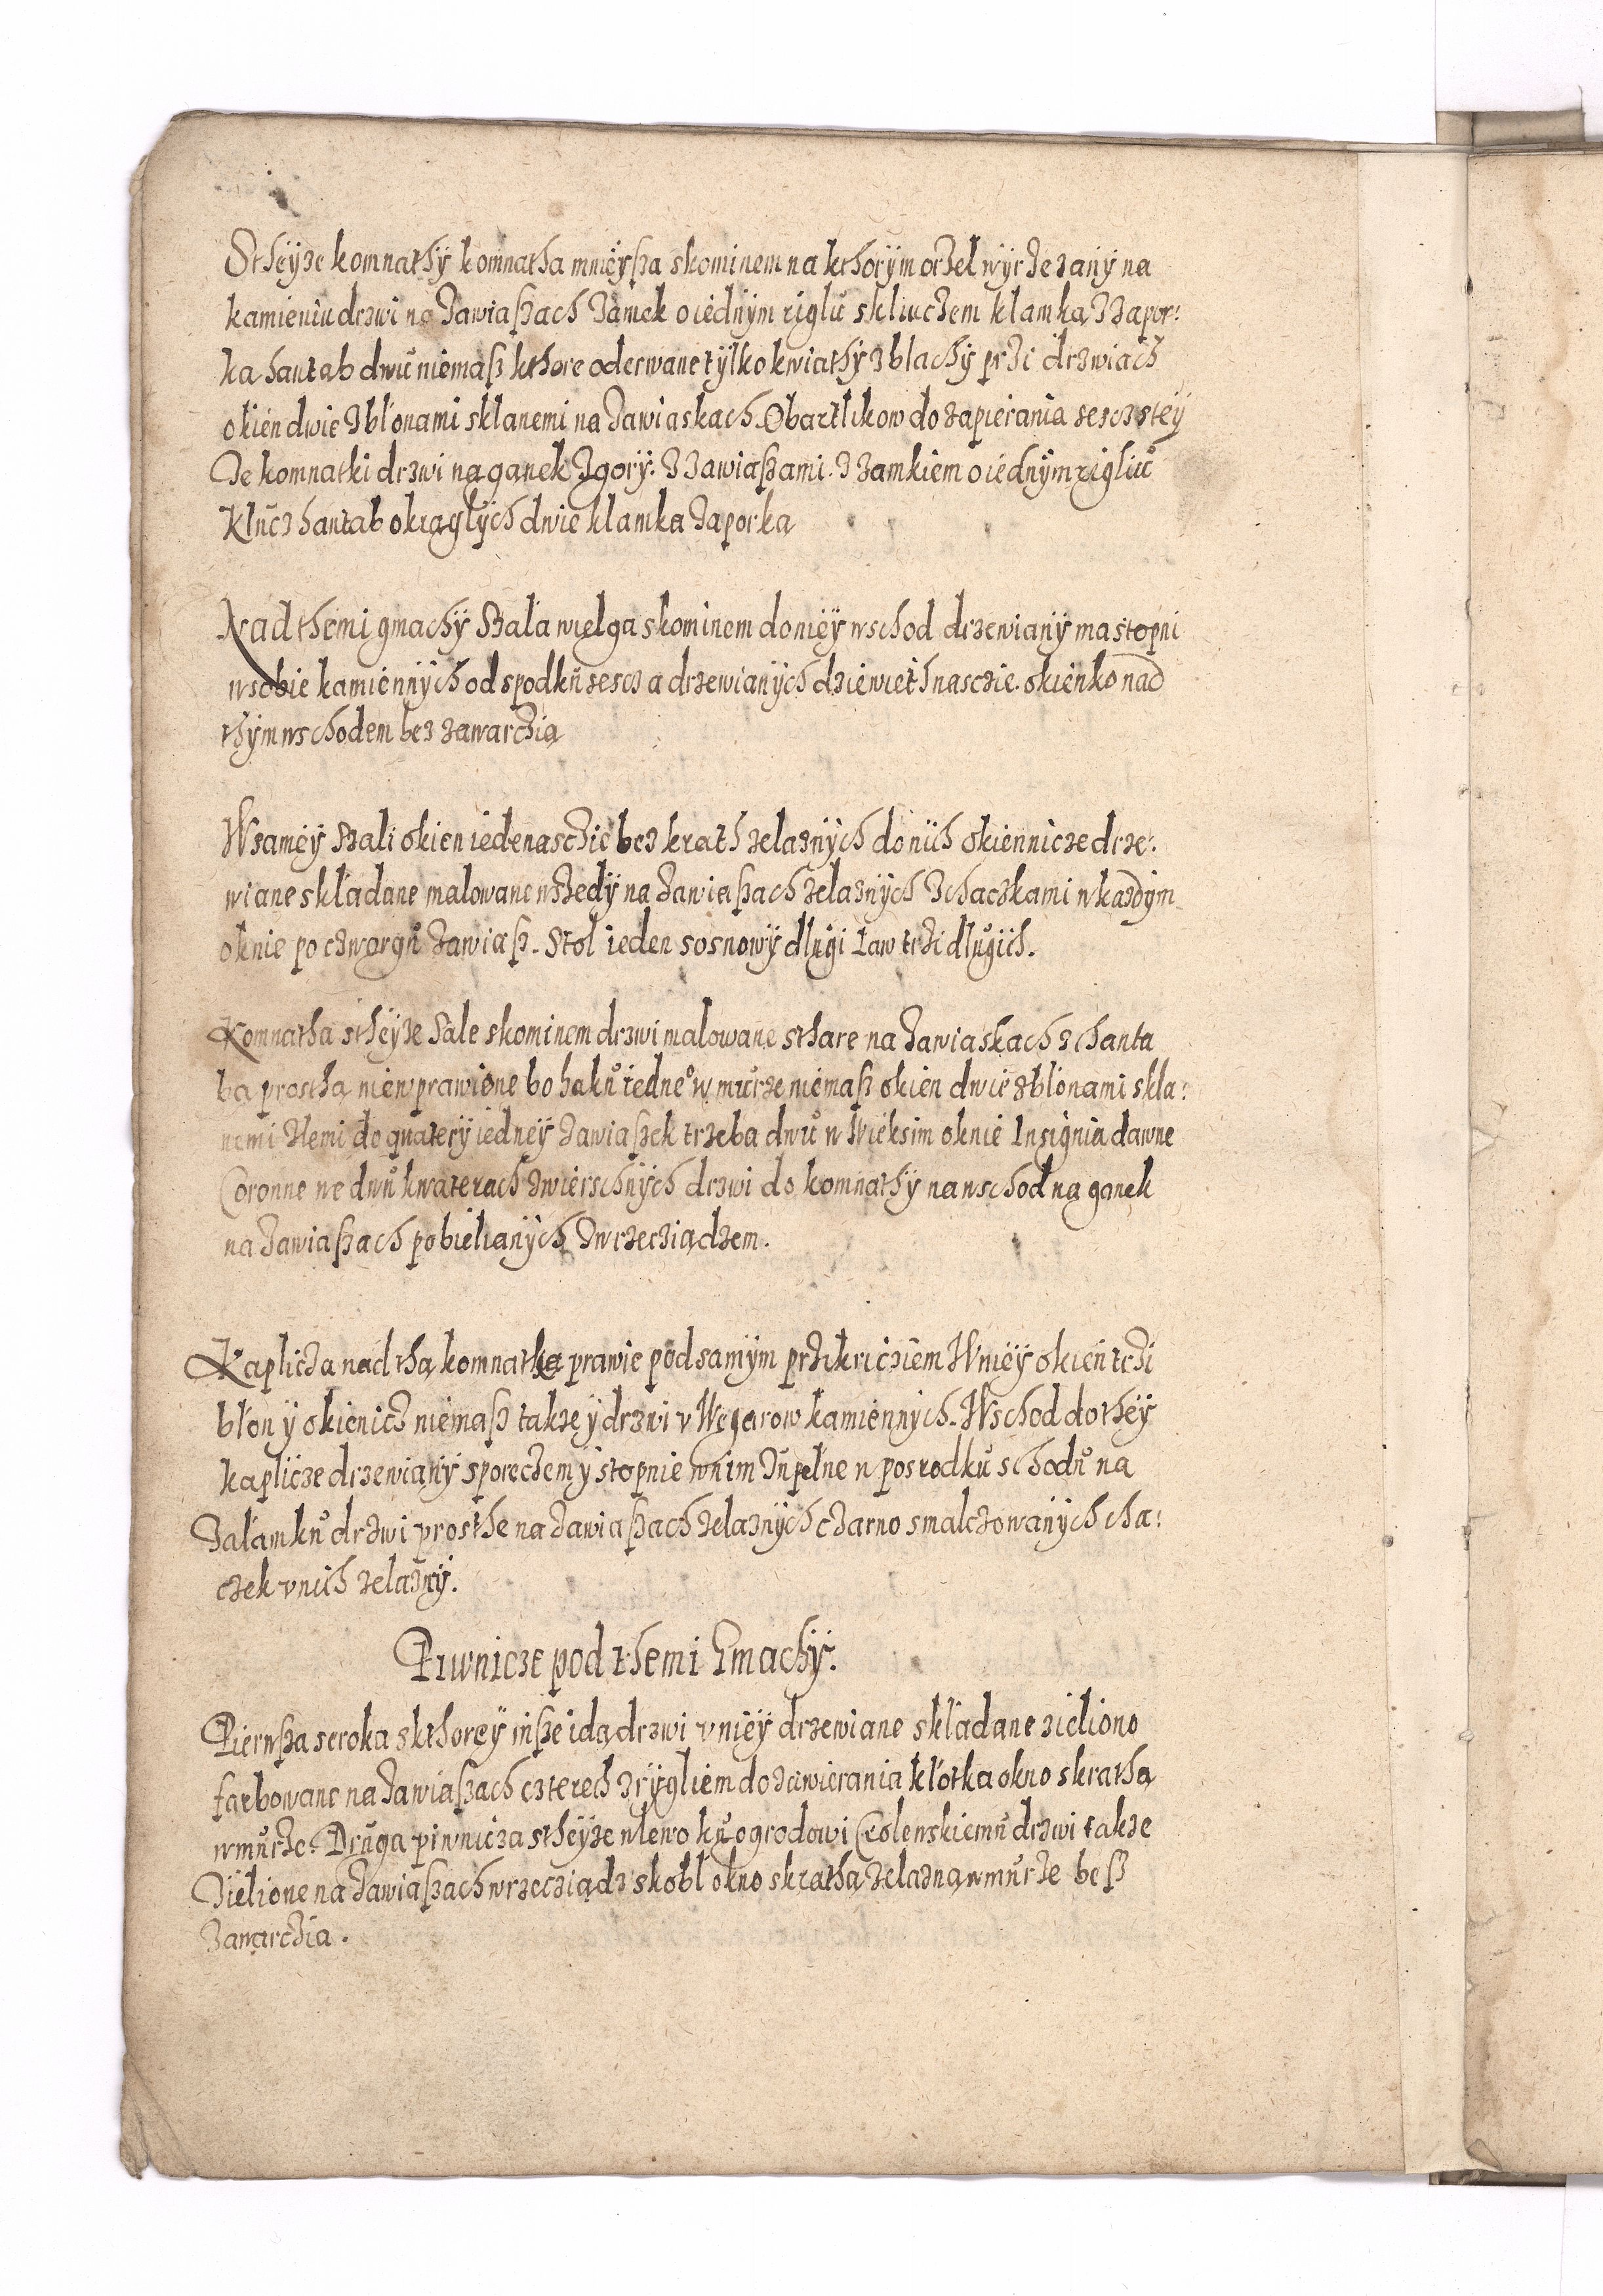 Stheÿze komnathÿ komnatha mnieÿsza skominem na kthorÿm orzel wÿrzezanÿ na
kamieniu drzwi na zawiaszach zamek o iednÿm riglu skluczem klamka z zapor:
ka hantab dwu niemasz kthore oderwane tÿlko kwiathÿ z blachÿ przi drzwiach
okien dwie z blonami sklanemi na zawiaskach. Obartlikow do zapierania szescz steÿ
ze komnatki drzwi na ganek z gorÿ. z zawiaszami. z zamkiem o iednÿm rigliu
klucz hantab okraglÿch dwie klamka zaporka
Nad themi gmachÿ Szala wielga skominem do nieÿ wschod drzewianÿ ma stopni
wsobie kamiennÿch od spodku zescz a drzewianÿch dziewiethnasczie. okienko nad
thÿm wschodem bez zawarczia
Wsameÿ Szali okien iedenasczie bez krath zelaznÿch do nich okiennicze drze:
wiane składane malowane wszedÿ na zawiaszach zelaznÿch z chaczkami w kazdÿm
oknie po czworgu zawiasz. Stol ieden sosnowÿ dlugi Law trzi dlugich.
Komnatha stheÿze Sale skominem drzwi malowane sthare na zawiaskach z chanta
ba prostha niewprawione bo haku iedneo w murze niemasz okien dwie z blonami skla:
nemi zlemi do quaterÿ iedneÿ zawiaszek trzeba dwu w Wieksim oknie Insignia dawne
Coronne we dwu kwaterach zwierschnÿch drzwi do komnathÿ na wschod na ganek
na zawiaszach pobielianÿch zwrzecziadzem.
Kaplicza nad tha komnatka prawie pod samÿm przikricziem Wnieÿ okien trzi
błon ÿ okienicz niemasz takze ÿ drzwi v Wegarow kamiennÿch. Wschod do theÿ
kaplicze drzewianÿ sporeczem ÿ stopnie wnim zupełne w posrodku schodu na
załamku drzwi prosthe na zawiaszach zelaznÿch czarno smalczowanÿch cha:
czek v nich zelaznÿ.
Piwnicze pod themi Gmachÿ.
Pierwsza seroka skthoreÿ insze ida drzwi v nieÿ drzewiane składane zieliono
farbowane na zawiaszach czterech z rÿgliem do zawierania kłotka okno skratha
wmurze. Druga piwnicza stheÿze wlewo ku ogrodowi Crolewskiemu drzwi takze
zielione na zawiaszach wrzecziadz skobl okno skratha zelazna wmurze besz
zawarczia.